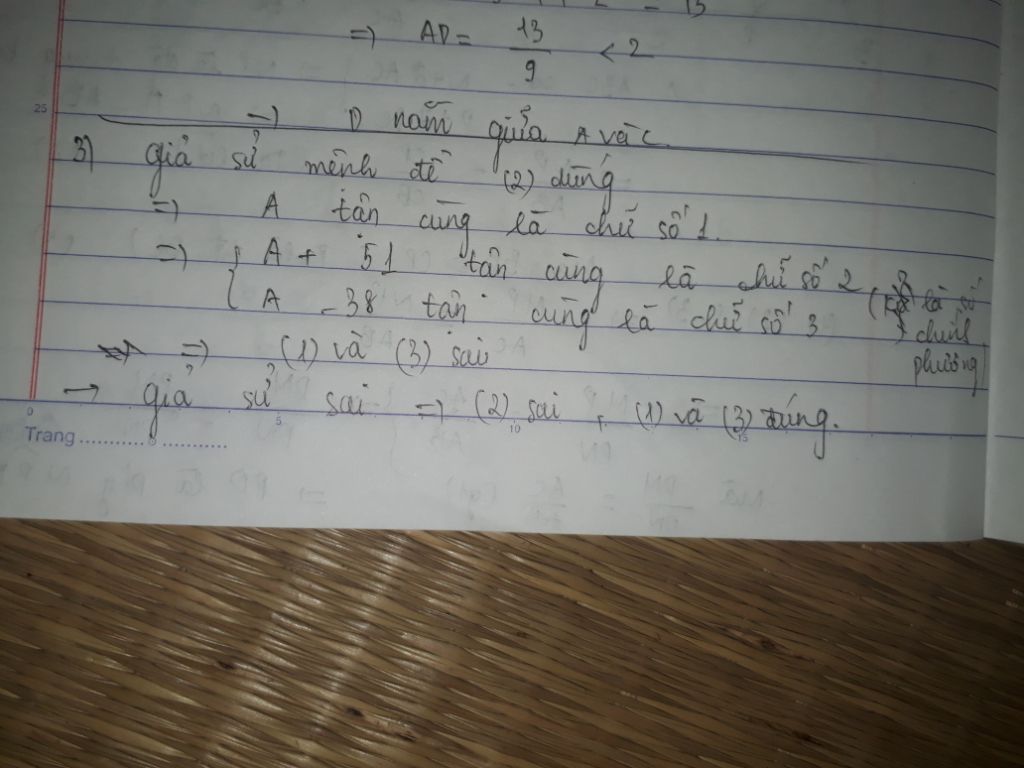 =) AD = 13/9 < 2
25
-) D nằm giữa A và C
3) giả sử mệnh đề (2) đúng
=) A tận cùng là chữ số 1.
=) { A + 51 tận cùng là chữ số 2
A - 38 tận cùng là chữ số 3 ( là số chính phương)
=) (1) và (3) sai
→ giả sử sai =) (2) sai, (1) và (3) đúng.
0 5 10 15
Trang